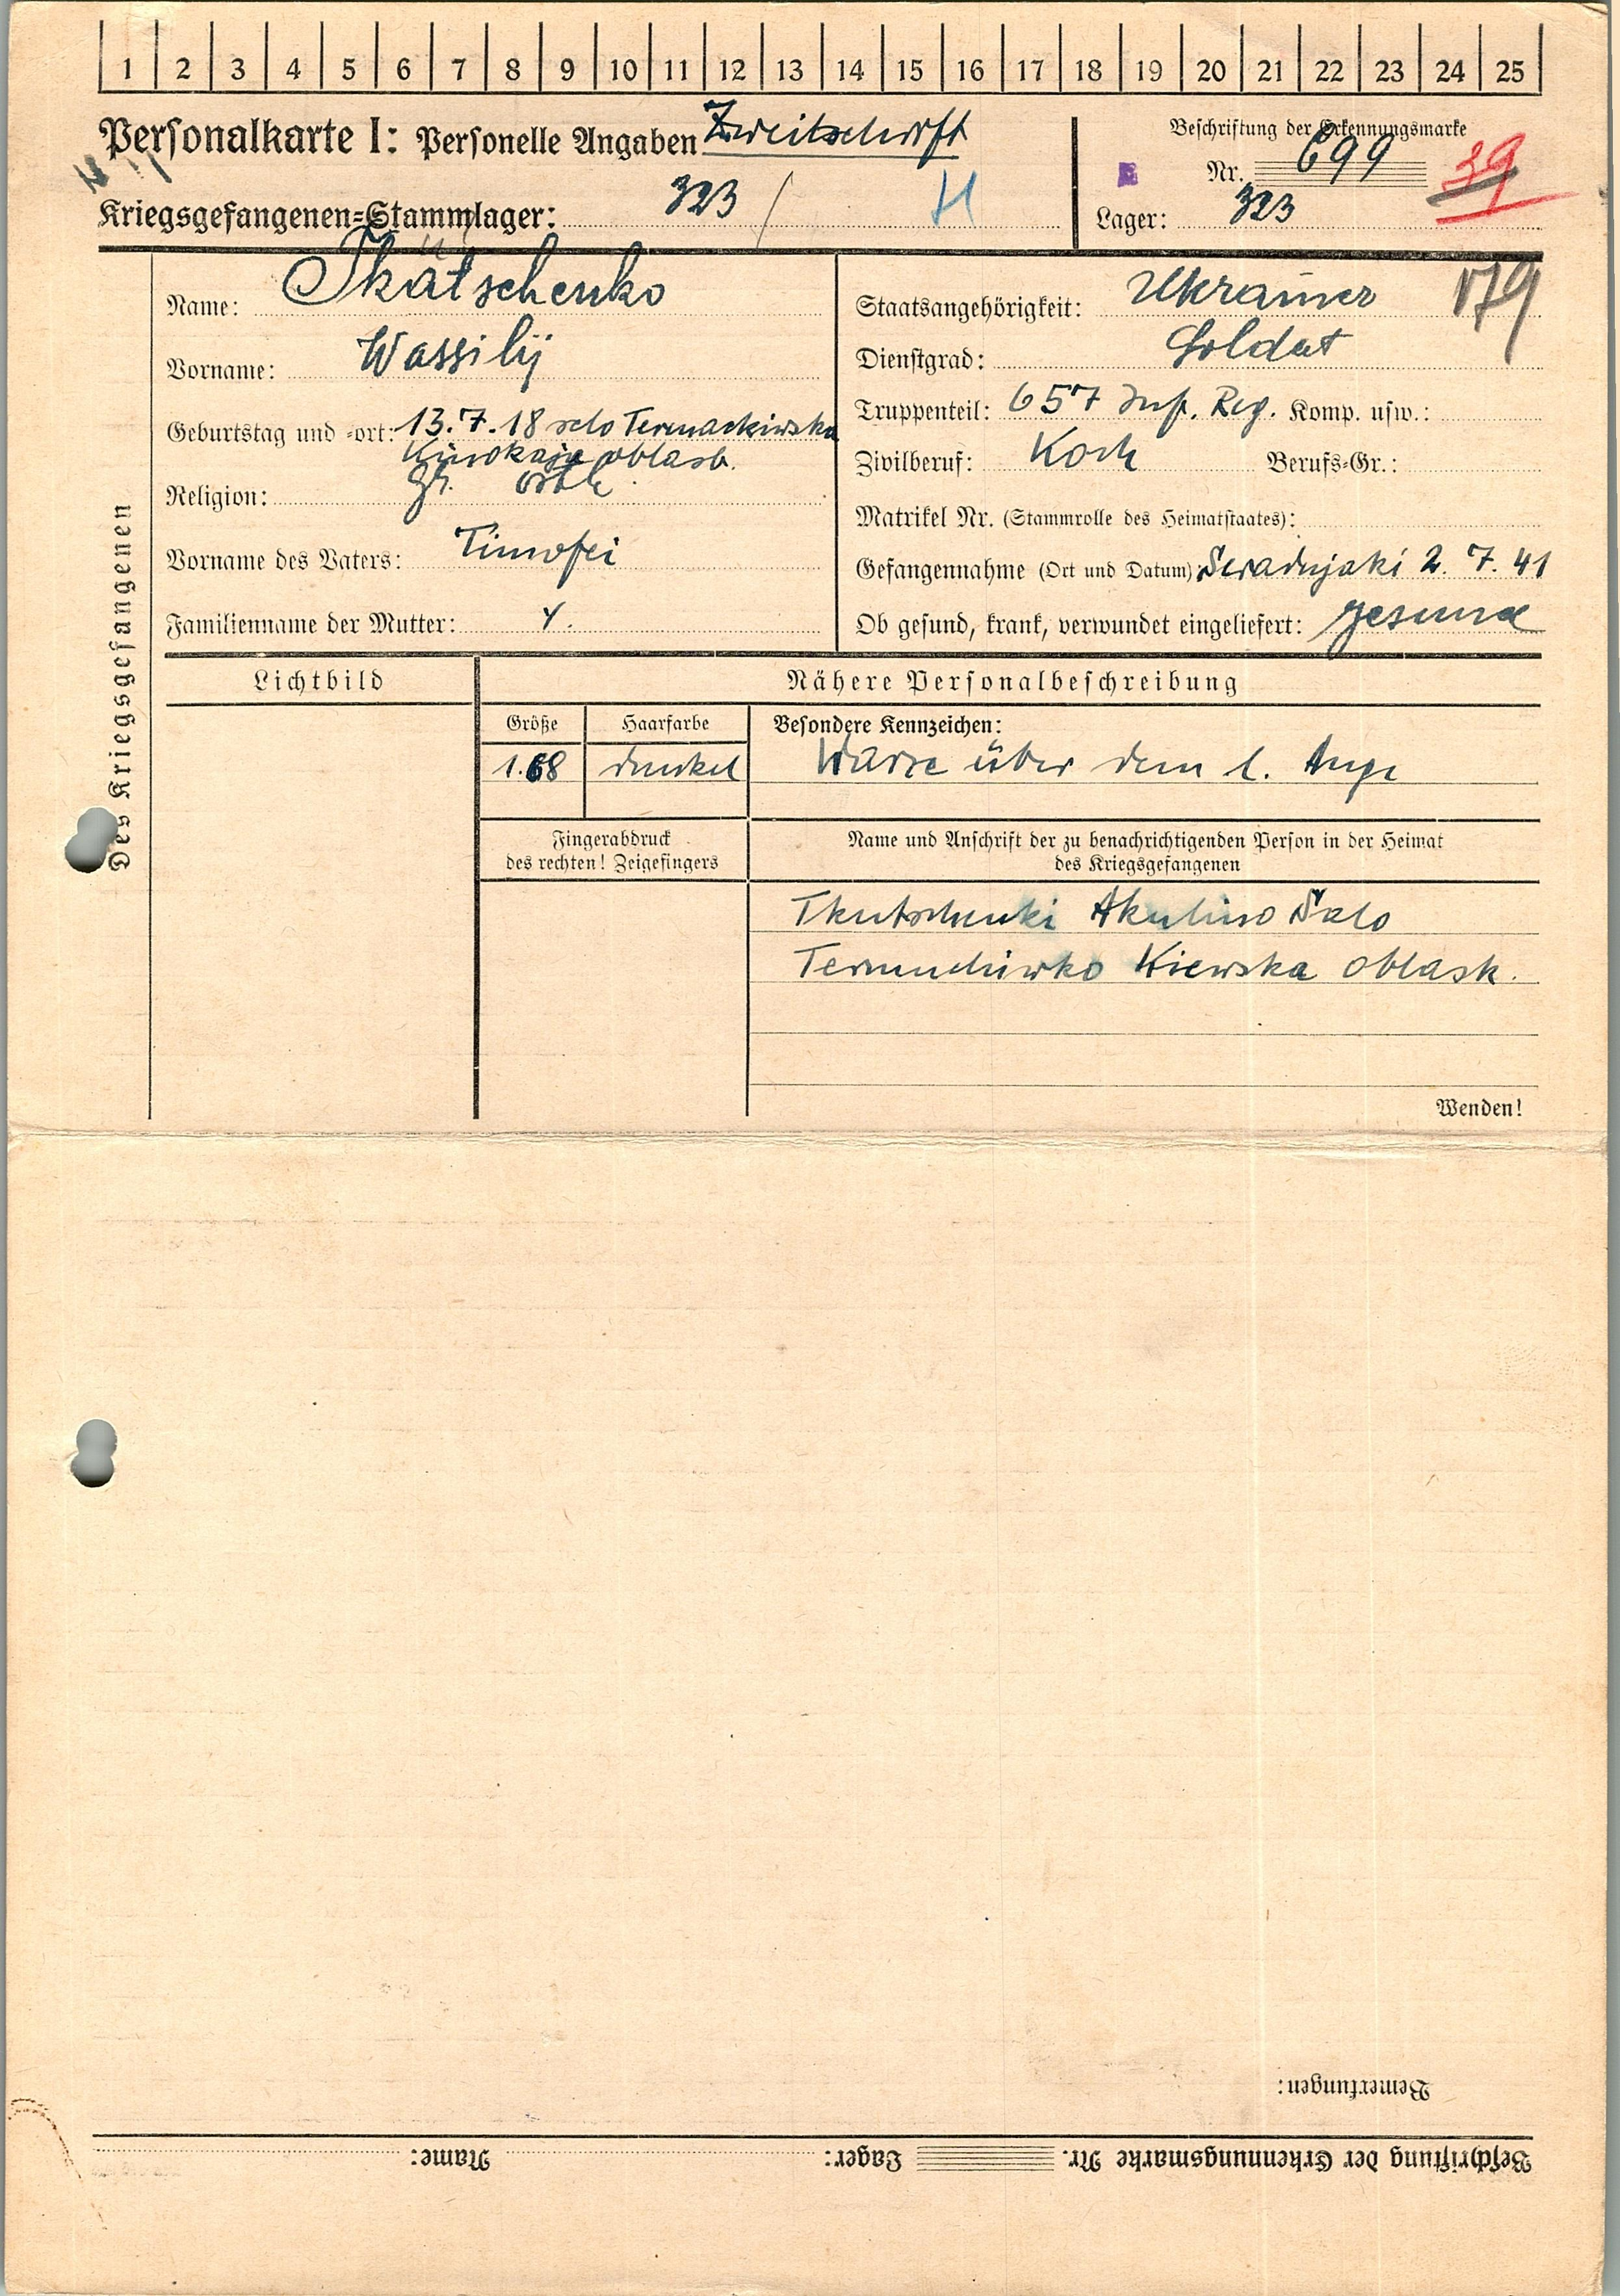 1 2 3 4 5 6 7 8 9 10 11 12 13 14 15 16 17 18 19 20 21 22 23 24 25
Personalkarte I: Personelle Angaben Zweitschrift
Beschriftung der Erkennungsmarke
Nr. 699 39
Kriegsgefangenen-Stammlager: 323 / H
Lager: 323
Des Kriegsgefangenen
Name: Tkatschenko
Vorname: Wassilij
Geburtstag und -ort: 13.7.18 selo
oblast.
Religion: gr. orth.
Vorname des Vaters: Timofei
Familienname der Mutter:
Staatsangehörigkeit: Ukrainer 179
Dienstgrad: Soldat
Truppenteil: 657 Inf. Reg. Komp. usw.:
Zivilberuf: Koch Berufs-Gr.:
Matrikel Nr. (Stammrolle des Heimatstaates):
Gefangennahme (Ort und Datum): 2. 7. 41
Ob gesund, krank, verwundet eingeliefert: gesund
Lichtbild
Nähere Personalbeschreibung
Größe Haarfarbe Besondere Kennzeichen:
1.68 dunkel Warze über dem l. Auge
Fingerabdruck
des rechten! Zeigefingers
Name und Anschrift der zu benachrichtigenden Person in der Heimat
des Kriegsgefangenen
Akulino
Kiewska oblask.
Wenden!
Bemerkungen:
Beschriftung der Erkennungsmarke Nr. Lager: Name: